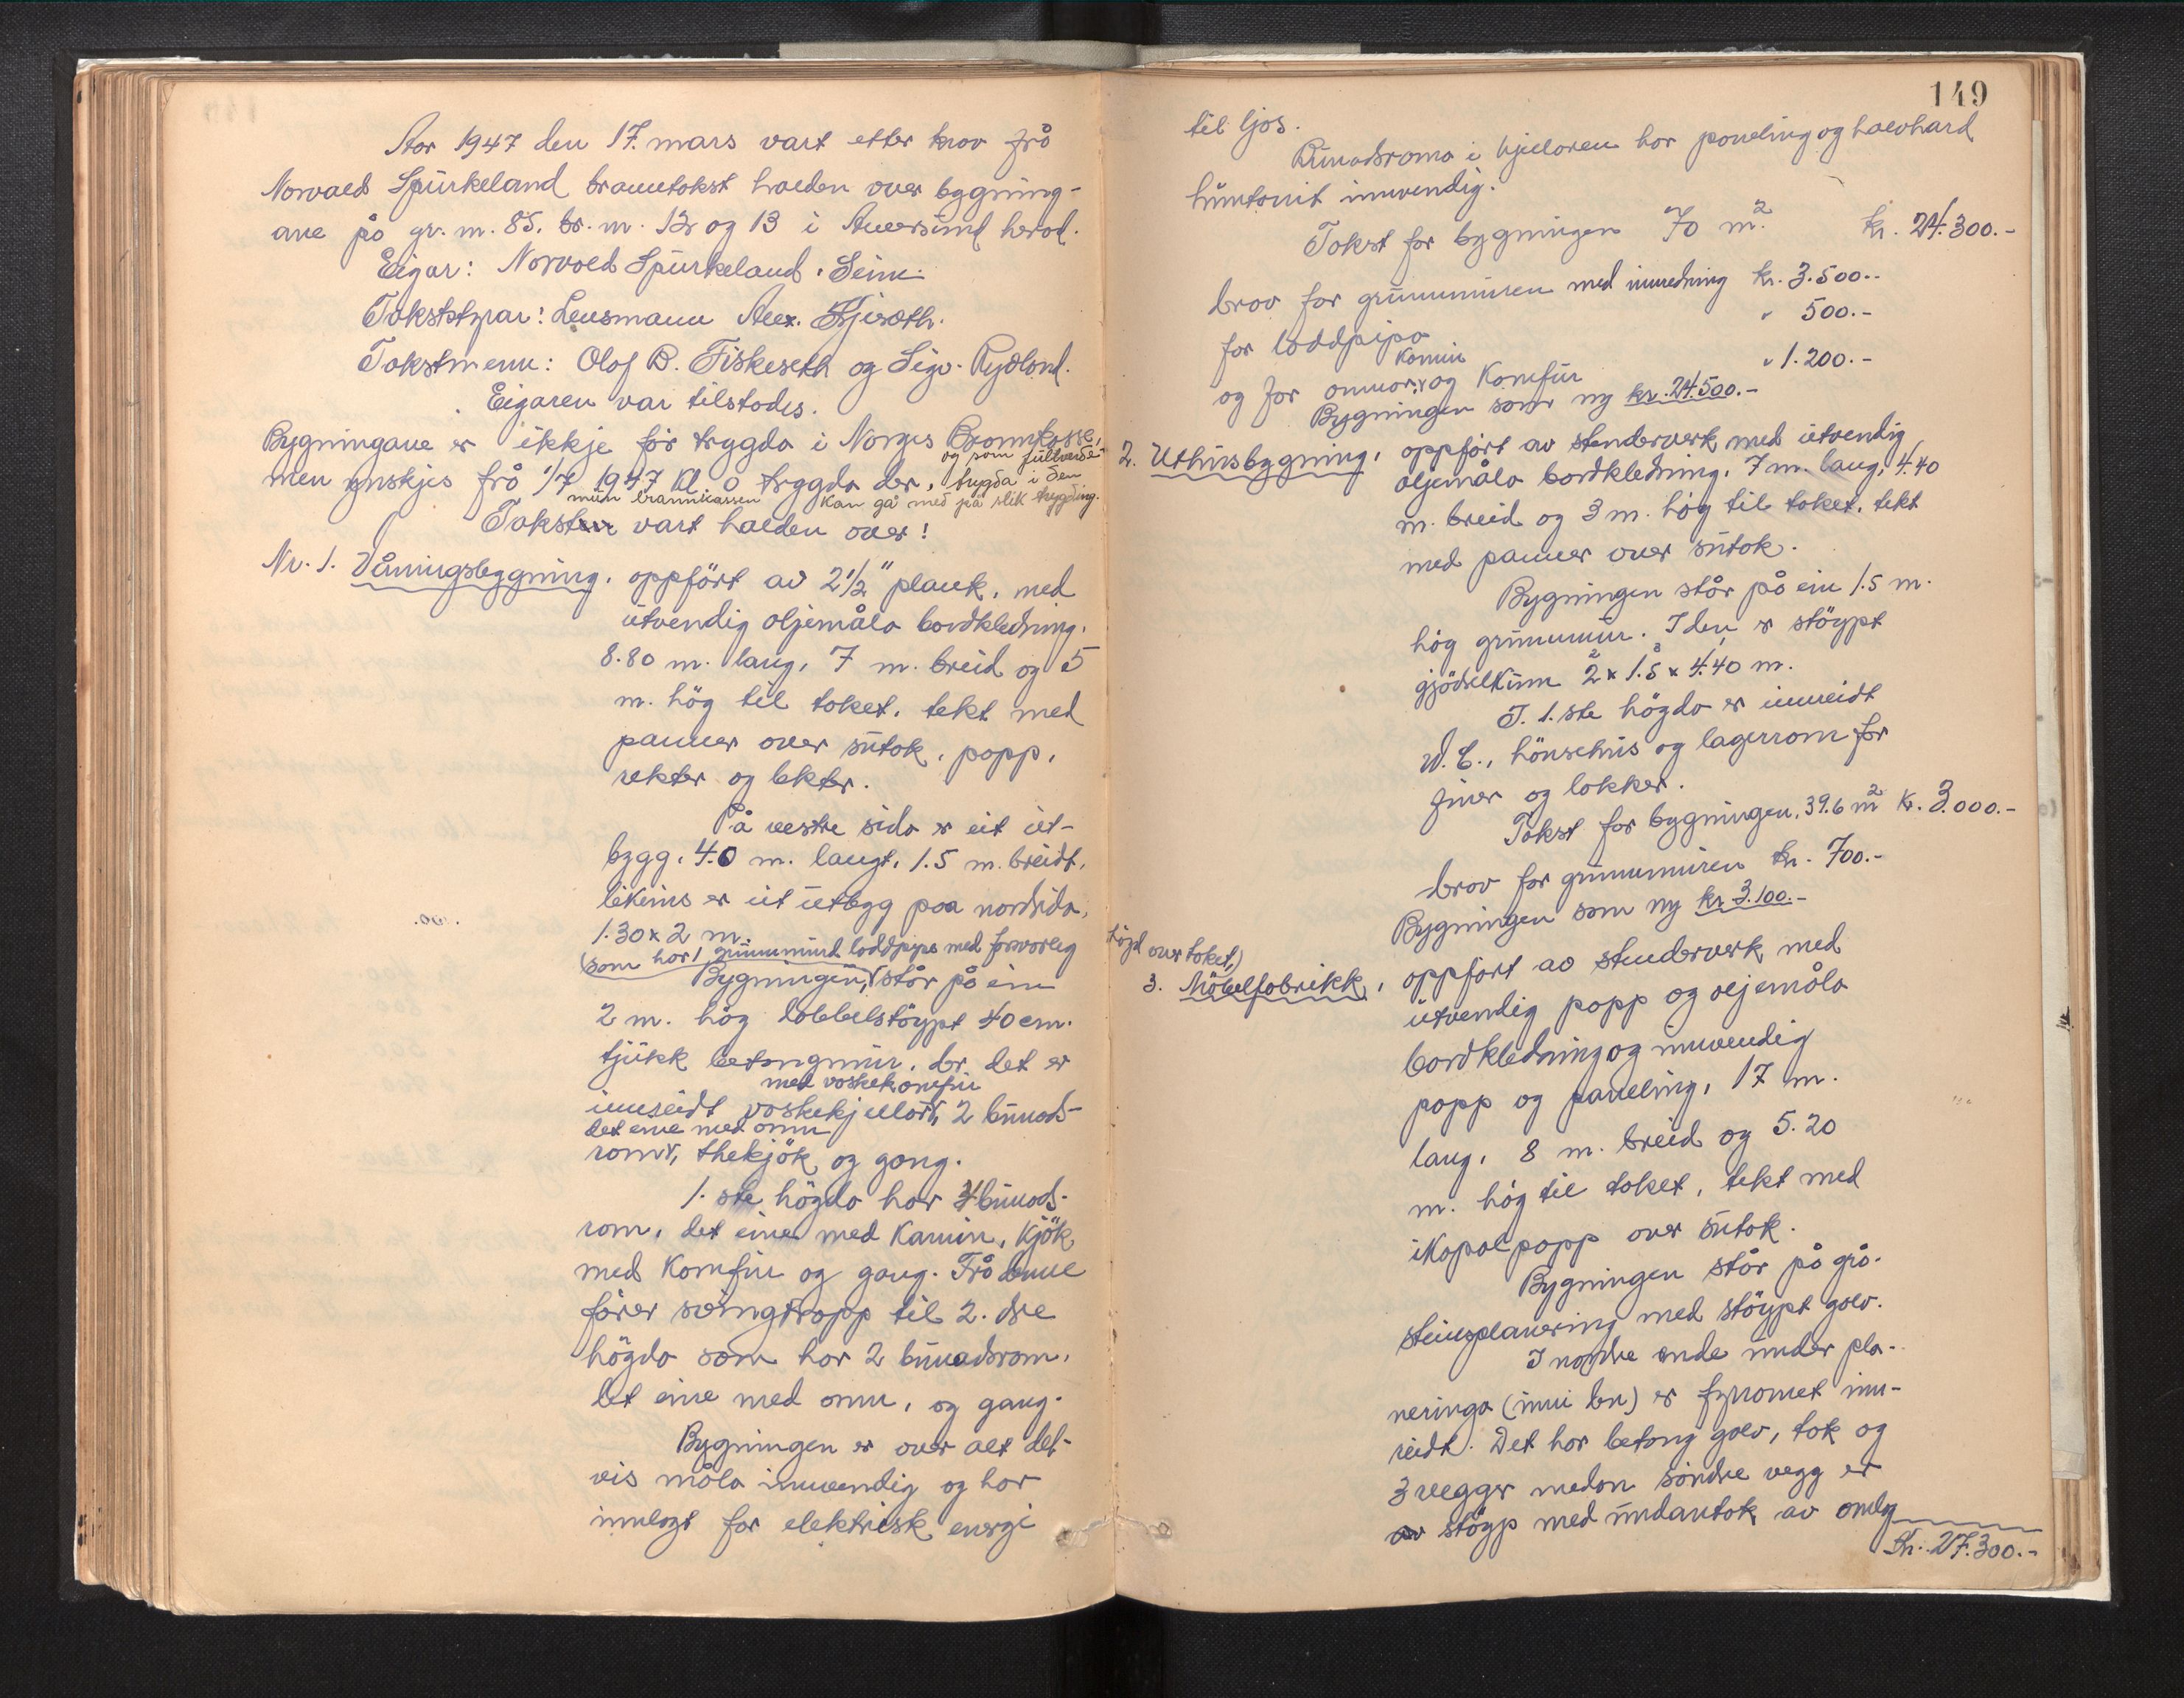 Aar 1947 den 17. mars vart etter krav frå
Norvald Spurkeland branntakst halden over bygning-
ane på gr. nr. 85, br. nr. 12 og 13 i Alversund herad.
Eigar: Norvald Spurkeland. Seim.
Takststyrar: Lensmann Alex.
Takstmenn: Olaf B. Fiskeseth og Sigv. Rydland.
Eigaren var tilstades.
Bygningane er ikkje før trygda i Norges Brannkasse,
og som fullverde
men ynskjes frå 1/4 1947 kl. 0 trygda der, trygda i den
mun brannkassen kan gå med på slik trygding.
Taksten vart halden over:
Nr. 1. Våningsbygning, oppført av 2 1/2" plank, med
utvendig oljemåla bordkledning,
8.80 m. lang, 7 m. breid og 5
m. høg til taket, tekt med
panner over sutak, papp,
rekter og lekter.
På vestre sida er eit ut-
bygg, 4.0 m. langt, 1.5 m. breidt,
likeins er eit utbygg paa nordsida,
1.30 x 2 m.
(som har 1 grunnmurt loddpipe med forsvarleg
Bygningen, står på ein
2 m. høg dobbelstøypt 40 cm.
tjukk betongmur, der det er
med vaskekomfur
innreidt vaskekjellar, 2 buands-
det eine med omn
rom, thekjøk og gang.
1. ste høgda har 4 buands-
rom, det eine med kamin, kjøk
med komfur og gang. Frå denne
fører svingtrapp til 2. dre
høgda som har 2 buandsrom,
det eine med omn, og gang.
Bygningen er over alt det-
vis måla innvendig og har
innlagt for elektrisk energi
149
til ljos.
Buandsroma i kjellaren har paneling og halvhard
huntonit innvendig.
Takst for bygningen 70 m2. kr. 24.300.-
Derav for grunnmuren med innredning kr. 3.500.-
for loddpipa " 500.-
kamin
og for omnar, og komfur " 1.200.-
Bygningen som ny kr. 24.500.-
2. Uthusbygning, oppført av stenderverk med utvendig
oljemåla bordkledning, 7 m. lang, 4.40
m. breid og 3 m. høg til taket, tekt
med panner over sutak.
Bygningen står på ein 1.5 m.
høg grunnmur. I den er støypt
gjødselkum 2 x 1.5 x 4.40 m.
I. 1. ste høgda er innreidt
W.C., hønsehus og lagerrom for
finer og lakker.
Takst for bygningen, 39.6 m2 kr. 3.000.-
Derav for grunnmuren kr. 700.-
Bygningen som ny kr. 3.100.-
høgd over taket,)
3. Møbelfabrikk, oppført av stenderverk med
utvendig papp og oljemåla
bordkledning og innvendig
papp og paneling, 17 m.
lang, 8 m. breid og 5.20
m. høg til taket, tekt med
ikopalpapp over sutak.
Bygningen står på grå-
steinsplanering med støypt golv.
I nordre ende under pla-
neringa (inni den) er fyrromet inn-
reidt. Det har betong golv, tak og
3 vegger medan søndre vegg er
av støyp med undantak av omlag
Kr. 27.300.-